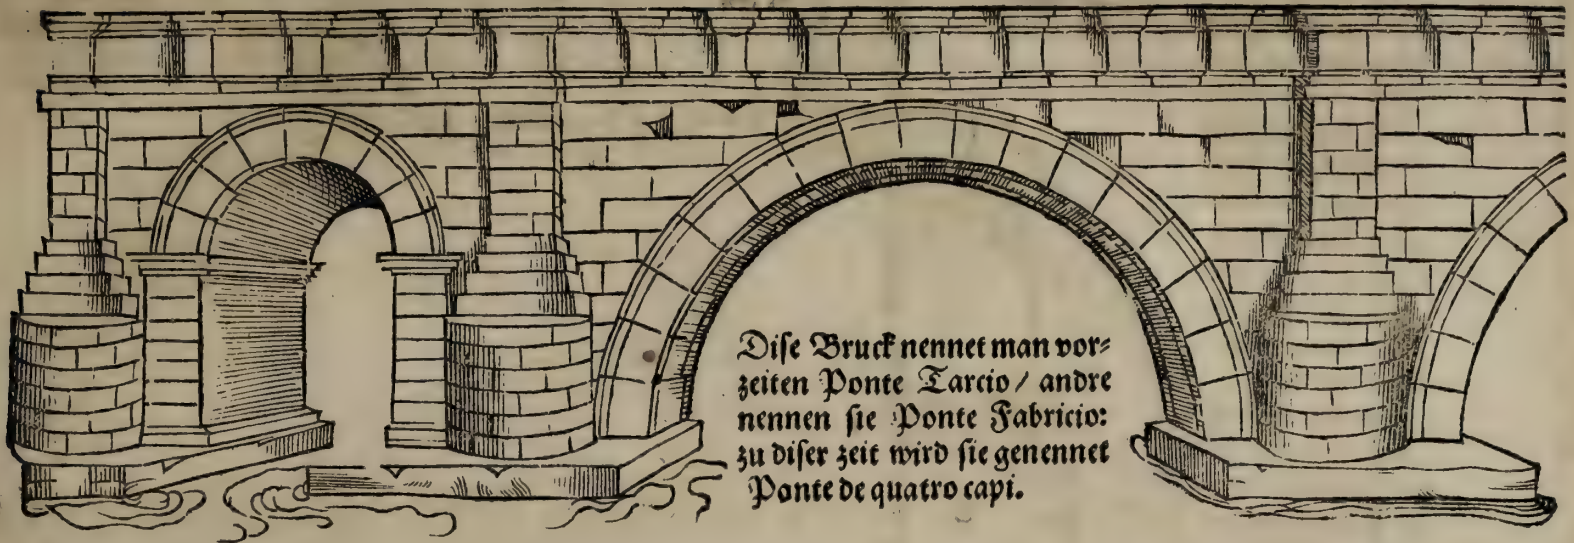 Dise Bruck nennet man vor⸗
zeiten Ponte Tarcio / andre
nennen sie Ponte Fabricio:
zu diser zeit wird sie genennet
Ponte de quatro capi.